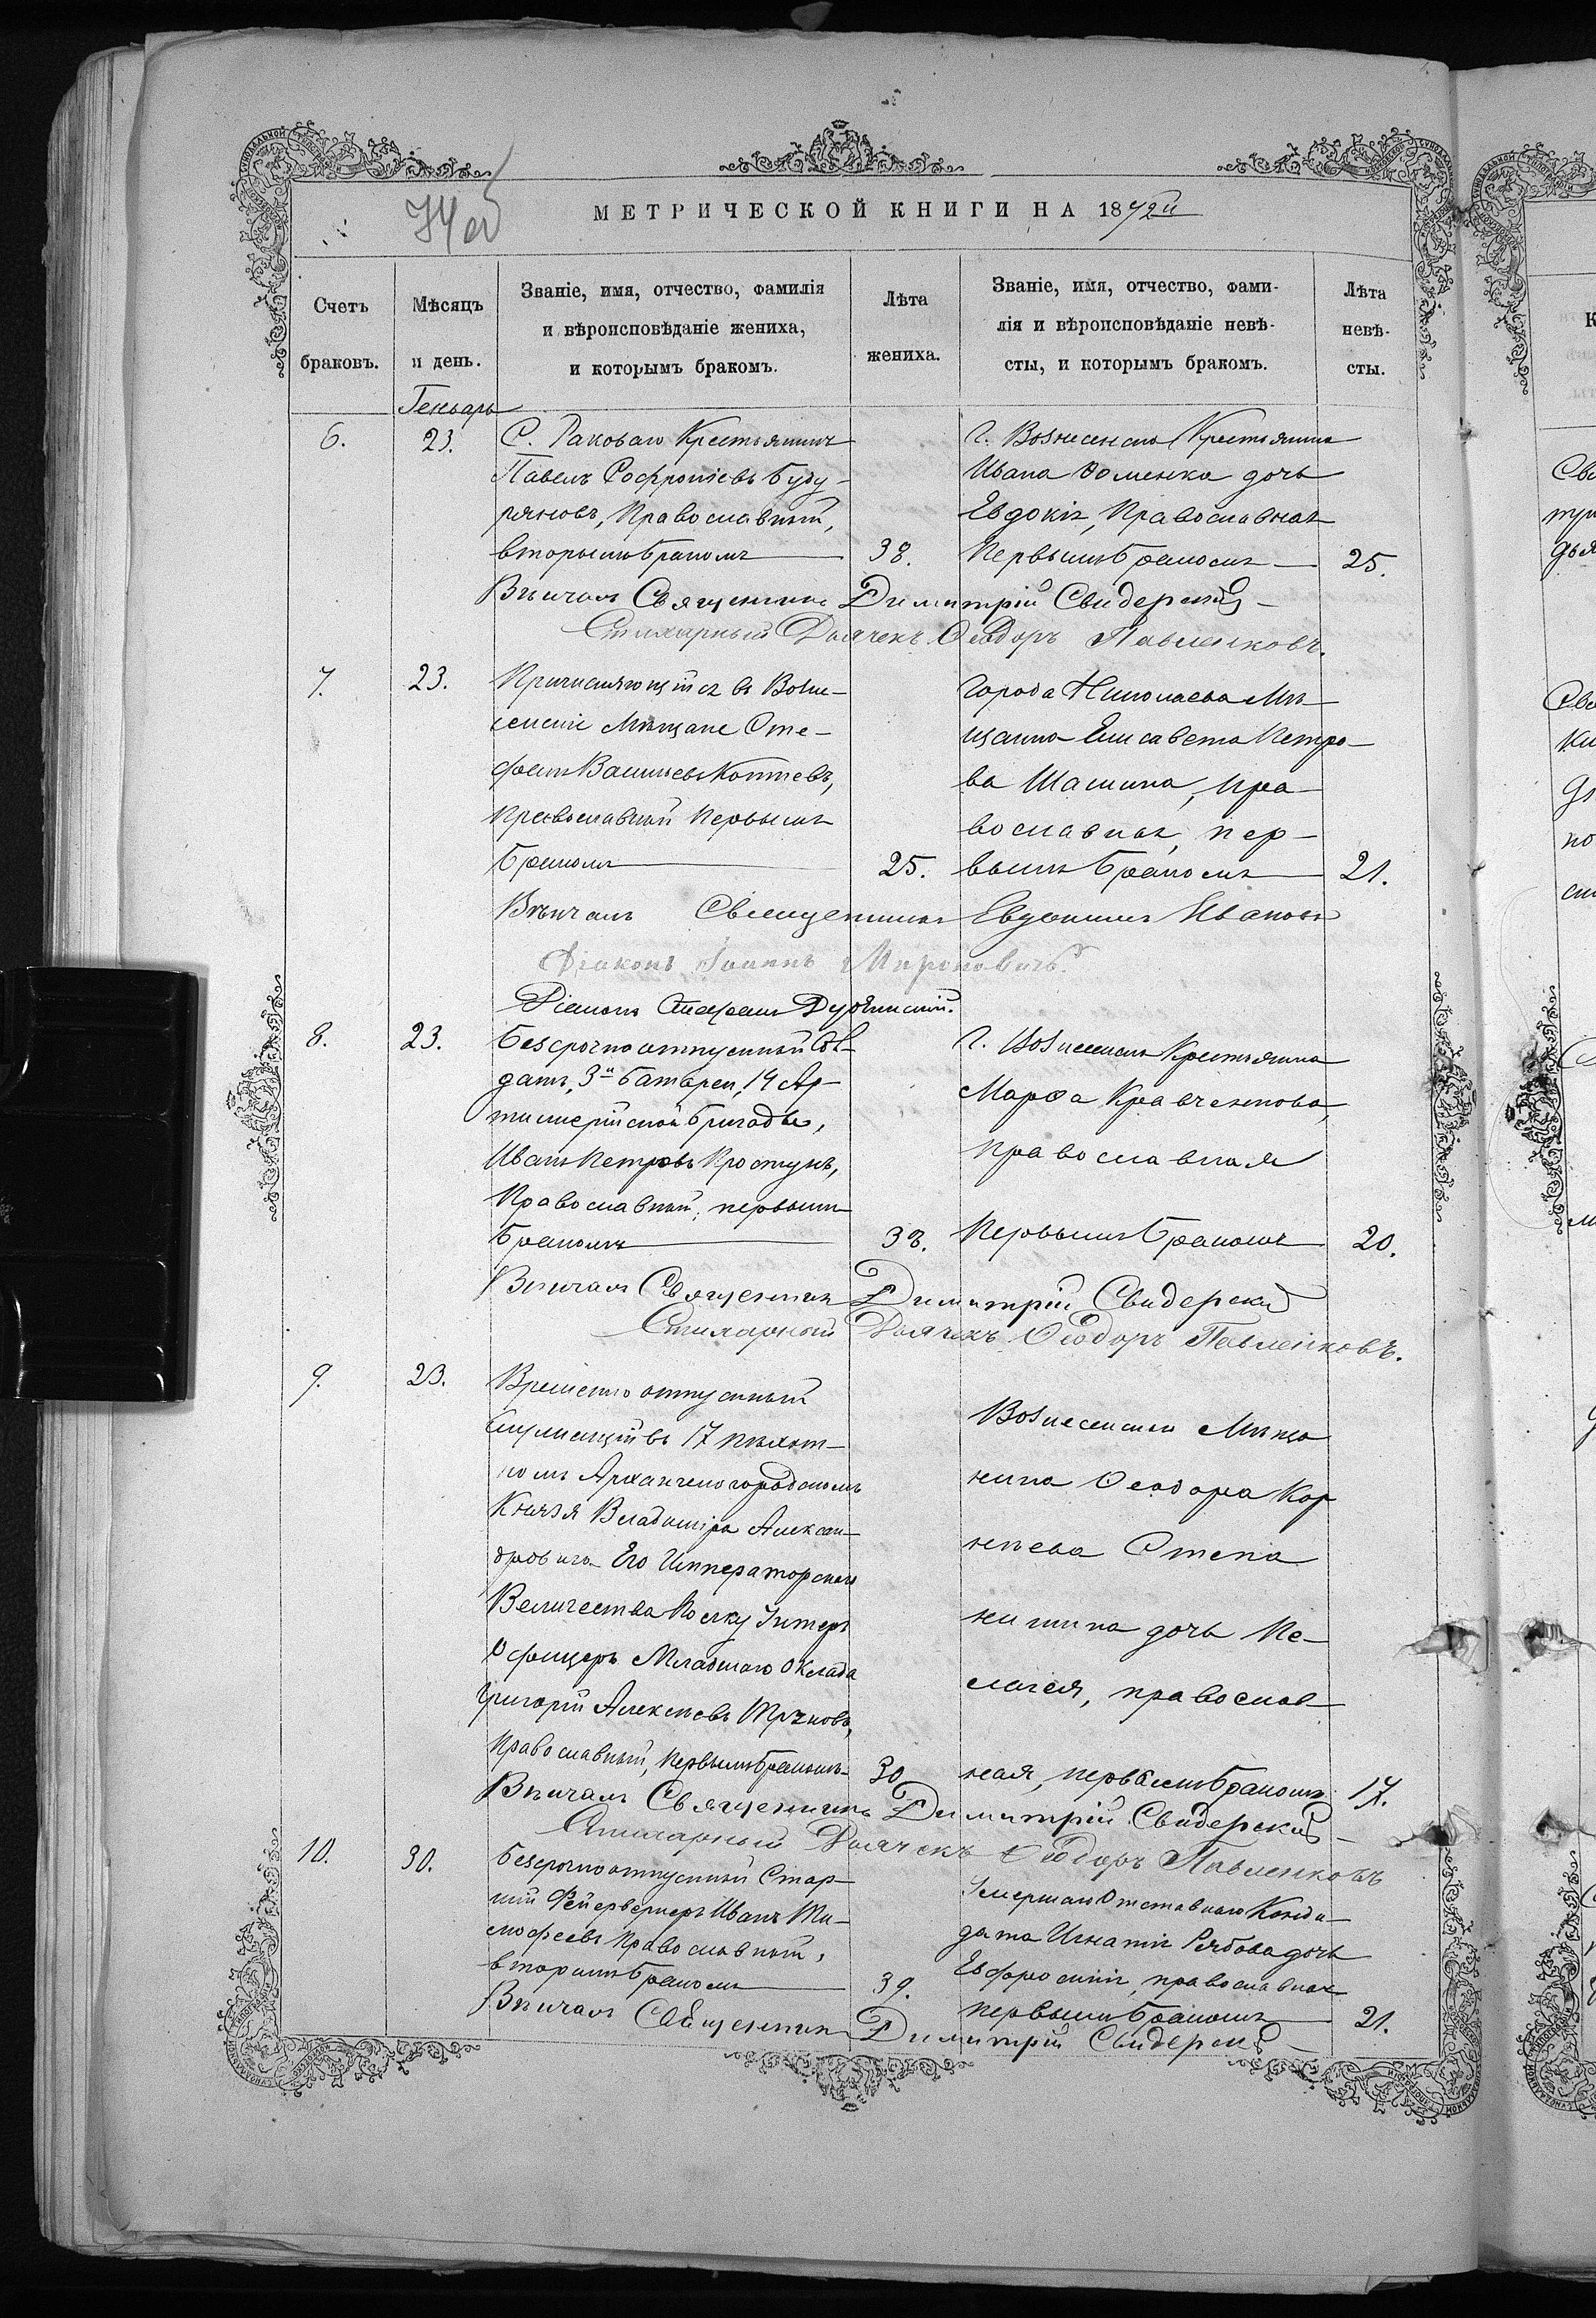 74 об
МЕТРИЧЕСКОЙ КНИГИ НА 1872й
Счетъ браковъ.
Мѣсяцъ и день.
Званіе, имя, отчество, фамилія
и вѣроисповѣданіе жениха,
и которымъ бракомъ.
Лѣта жениха.
Званіе, имя, отчество, фами-
лія и вѣроисповѣданіе невѣ-
сты, и которымъ бракомъ.
Лѣта невѣ-
сты.
Генварь
6.
23.
С. Раковаго Крестьянинъ
Павелъ Софроніевъ Буду-
ряновъ, Православный,
вторымъ бракомъ
38.
Г. Вознесенска Крестьянина
Ивана Фоменка дочь
Евдокія, Православная
Первымъ бракомъ
25.
Вѣнчалъ Священникъ Димитрій Свидерскій
Стихарный Дьячекъ Ѳеодоръ Павленковъ.
7.
23.
Причисляющійся въ Возне-
сенскіе Мѣщане Сте-
фанъ Васильевъ Коптевъ,
Православный Первымъ
бракомъ
25.
Города Николаева Мѣ-
щанка Елисавета Петро-
ва Шашина, пра-
вославная, пер-
вымъ бракомъ
21.
Вѣнчалъ Священникъ Евдокимъ Ивановъ
Діаконъ Іоаннъ Мироновичъ.
Діаконъ Стефанъ Дубинскій.
8.
23.
Безсрочноотпускный Сол-
датъ, 3й батареи, 14 Ар-
тиллерійской бригады,
Иванъ Петровъ Простунъ,
Православный, первымъ
бракомъ
38.
Г. Вознесенска Крестьянка
Марѳа Кравченкова,
православная
Первымъ бракомъ
20.
Вѣнчалъ Священникъ Димитрій Свидерскій
Стихарный Дьячекъ Ѳеодоръ Павленковъ.
9.
23.
Временно отпускный
служащій въ 17 пѣхот-
номъ Архангелогородскомъ
Князя Владиміра Алексан-
дровича Его Императорскаго
Величества Полку Унтеръ
Офицеръ Младшаго Оклада
Григорій Алексѣевъ
Православный, первымъ бракомъ
30
Вознесенскаго Мѣща
нина Ѳеодора Кор
нѣева Степа
нишина дочь Пе-
лагея, православ-
ная, первымъ бракомъ
17.
Вѣнчалъ Священникъ Димитрій Свидерскій
Стихарный Дьячекъ Ѳеодоръ Павленковъ
10.
30.
Безсрочноотпускный Стар-
шій Фейерверкеръ Иванъ Ти-
мофеевъ Православный,
вторымъ бракомъ
39.
Умершаго Отставнаго Канди-
дата Игнатія Рябова дочь
Евфросинія, православная
первымъ бракомъ
21.
Вѣнчалъ Священникъ Димитрій Свидерскій